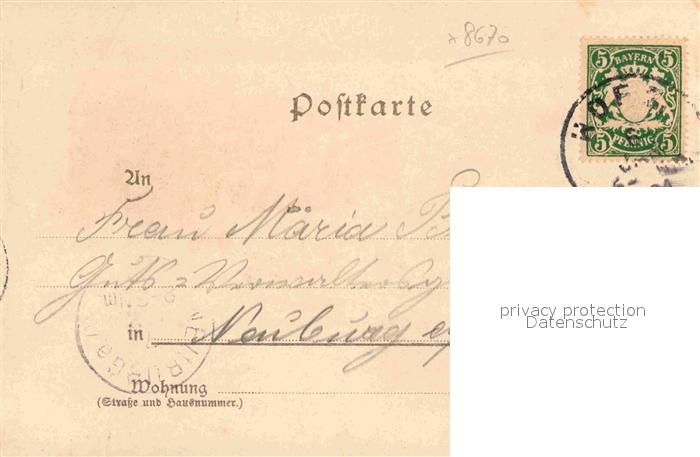 x8670
5 BAYERN 5
5 PFENNIG 5
HOF
Postkarte
An
Frau Maria
Guts-Verwalters
in Neuburg
NEUBURG a/
Wohnung
(Straße und Hausnummer.)
privacy protection
Datenschutz